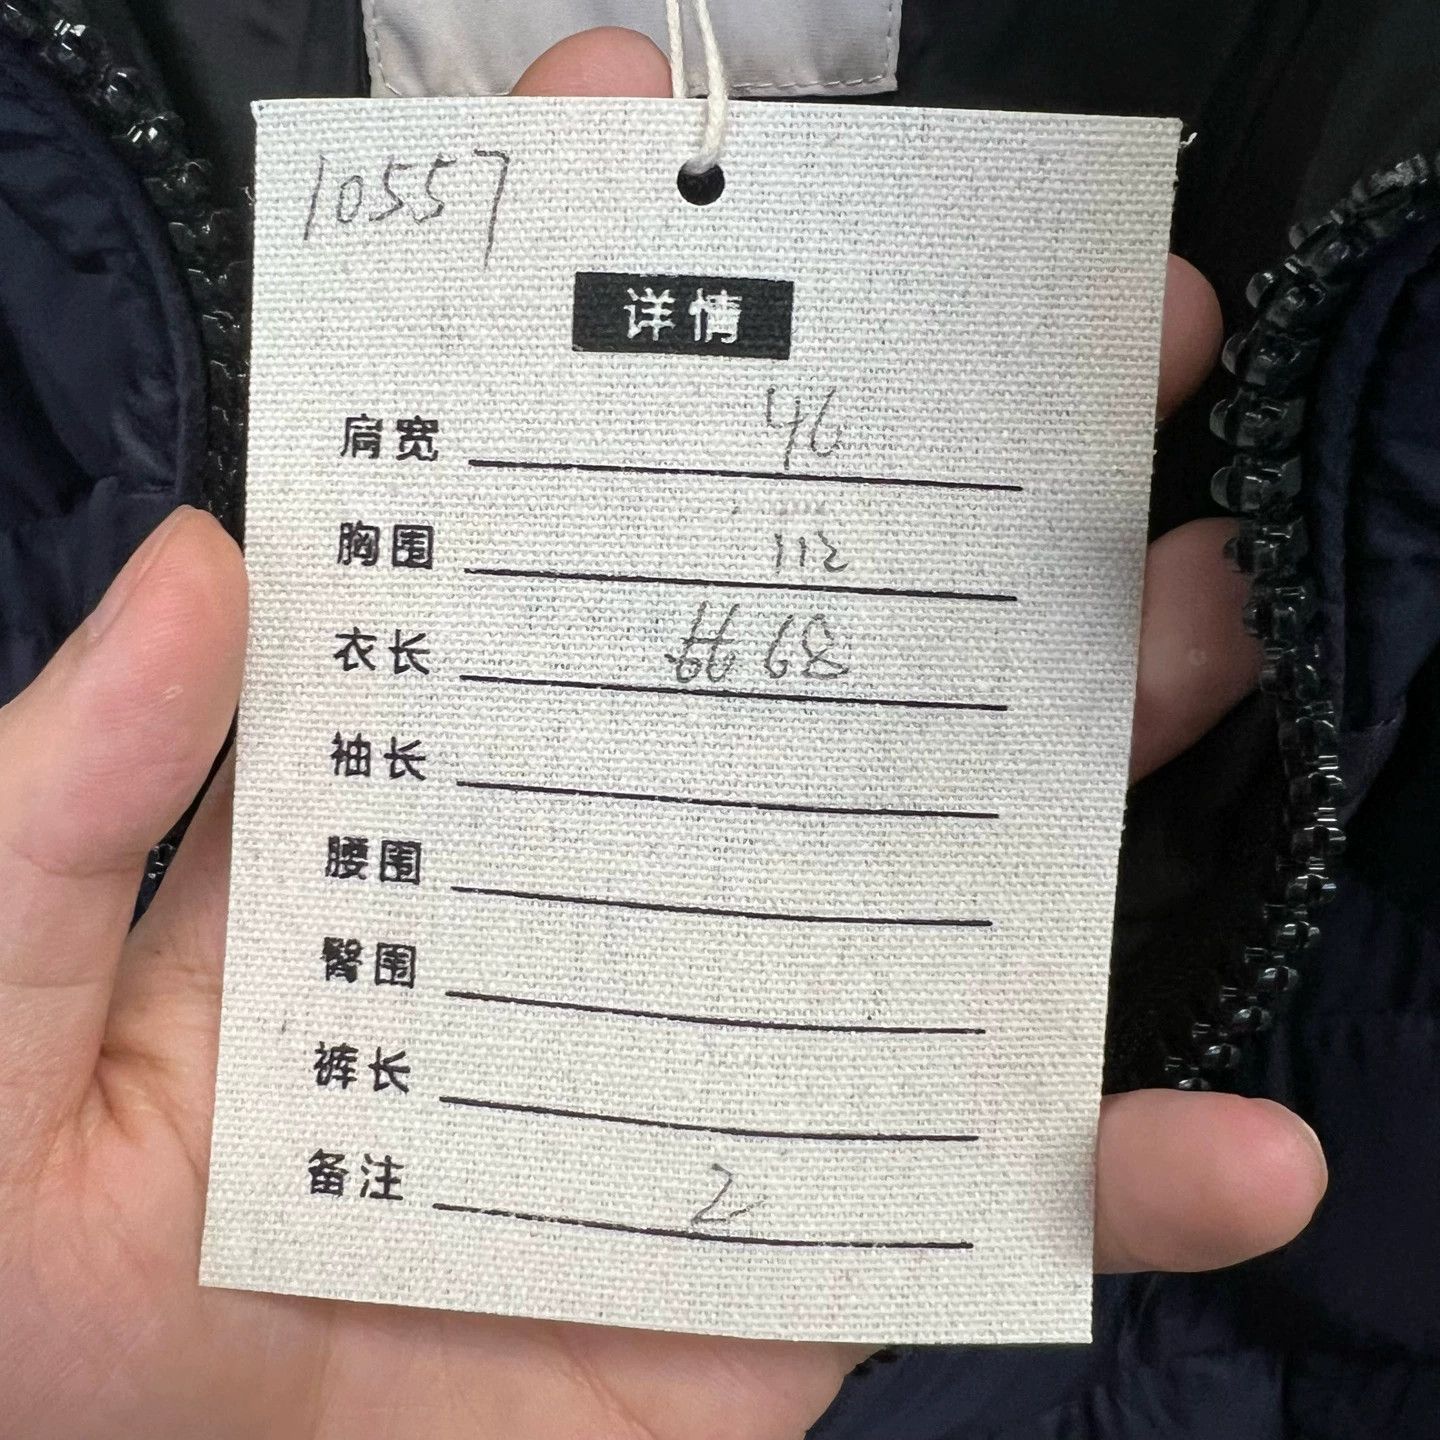 10557
详情
肩宽 46
胸围 112
衣长 68
袖长
腰围
臀围
裤长
备注 2